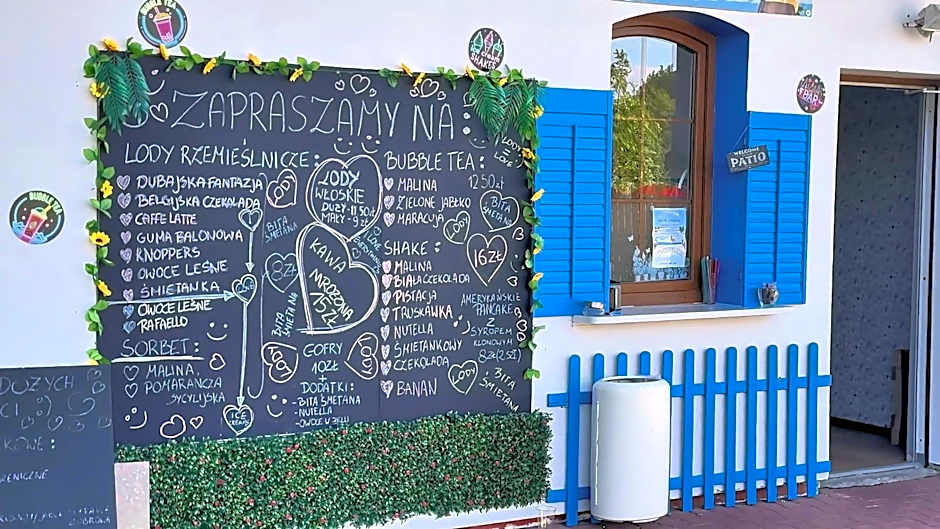 BUBBLE TEA
ICE CREAM
SHAKES
BUBBLE TEA
WELCOME
PATIO
ZAPRASZAMY NA:
LODY RZEMIEŚLNICZE:
DUBAJSKA FANTAZJA
BELGIJSKA CZEKOLADA
CAFFE LATTE
GUMA BALONOWA
KNOPPERS
OWOCE LEŚNE
ŚMIETANKA
OWOCE LEŚNE
RAFAELLO
SORBET:
MALINA,
POMARAŃCZA
SYCYLIJSKA
ICE
CREAM
BITA
ŚMIETANA
8ZŁ
BITA
ŚMIETANA
LODY
WŁOSKIE
DUŻY-11,50zł
MAŁY-9zł
KAWA
MROŻONA
15ZŁ
GOFRY
10ZŁ
DODATKI:
-BITA ŚMIETANA
-NUTELLA
-OWOCE W ŻELU
BUBBLE TEA:
MALINA 12,50zł
ZIELONE JABŁKO
MARACUJA
LODY
BITA
ŚMIETANA
SHAKE:
16ZŁ
MALINA
BIAŁA CZEKOLADA
PISTACJA
TRUSKAWKA
NUTELLA
ŚMIETANKOWY
CZEKOLADA
BANAN
AMERYKAŃSKIE
PANCAKE
Z
SYROPEM
KLONOWYM
8zł(2SZT)
LODY
BITA
ŚMIETANA
DUŻYCH